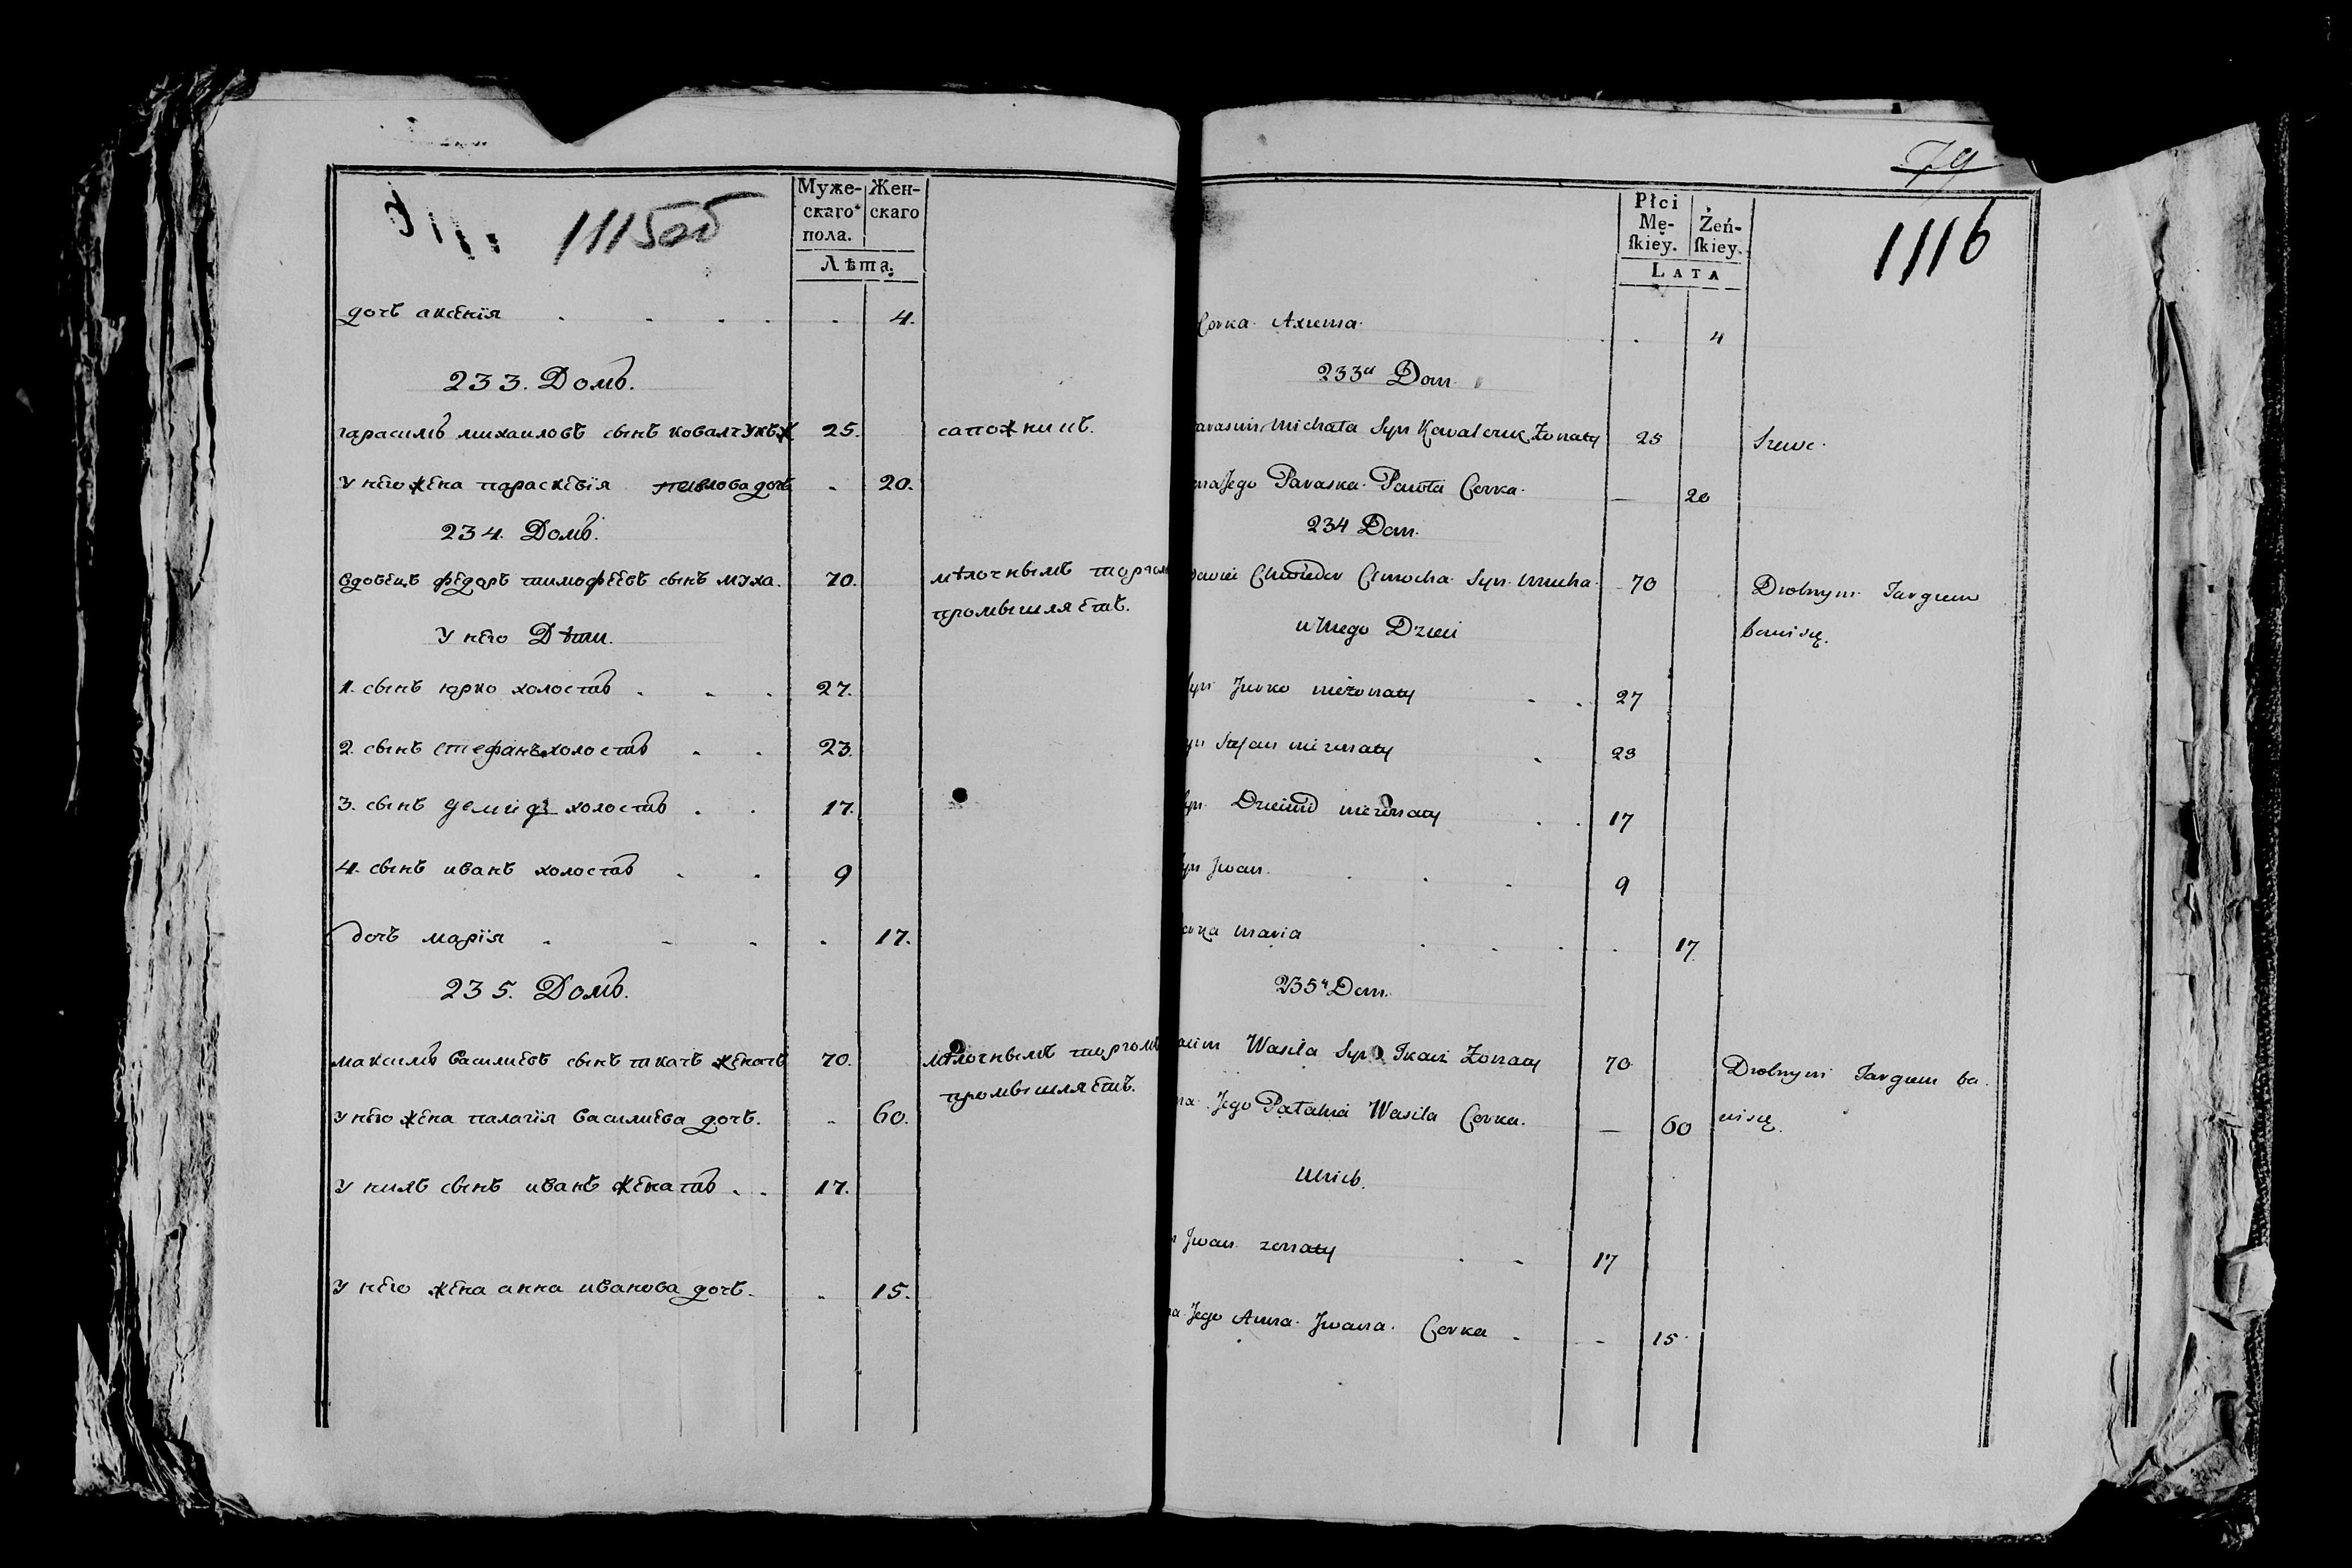 1115об
Муже-
скаго
пола.
Жен-
скаго
Лѣта.
дочь аксенія 4.
233. Домъ.
гарасимъ михаиловъ сынъ ковалчукъ ж 25. сапожникъ.
У него жена параскевія павлова дочь 20.
234. Домъ.
вдовецъ федоръ тимофеевъ сынъ муха. 70. мѣлочнымъ торгом
промышляетъ.
У него Дѣти.
1. сынъ юрко холостъ 27.
2. сынъ стефанъ холостъ 23.
3. сынъ демидъ холостъ 17.
4. сынъ иванъ холостъ 9
дочь марія 17.
235. Домъ.
максимъ василиевъ сынъ ткачъ женатъ 70. мѣлочнымъ торгомъ
промышляетъ.
У него жена палагія василиева дочь. 60.
У нихъ сынъ иванъ женатъ 17.
У него жена анна иванова дочь. 15.
79
1116
Płci
Mę-
ſkiey.
Żeń-
ſkiey.
LATA
Corka Axienia 4
233 Dom
arasim Michała Syn Kowalczuk Żonaty 25 Szewc.
na Jego Paraska Pawła Corka 20
234 Dom.
Chwedor Cimocha Syn Mucha 70 Drobnym Targiem
bawi się.
u Niego Dzieci
Syn Jurko nieżonaty 27
yn Stefan nieżonaty 23
Syn Dziemid nieżonaty 17
yn Jwan 9
orka Maria 17
235 Dom.
Wasila Syn Tkacz Żonaty 70 Drobnym Targiem ba
wi się.
na Jego Pałahia Wasila Corka. 60
U Nich
n Jwan żonaty 17
na Jego Anna Jwana Corka 15